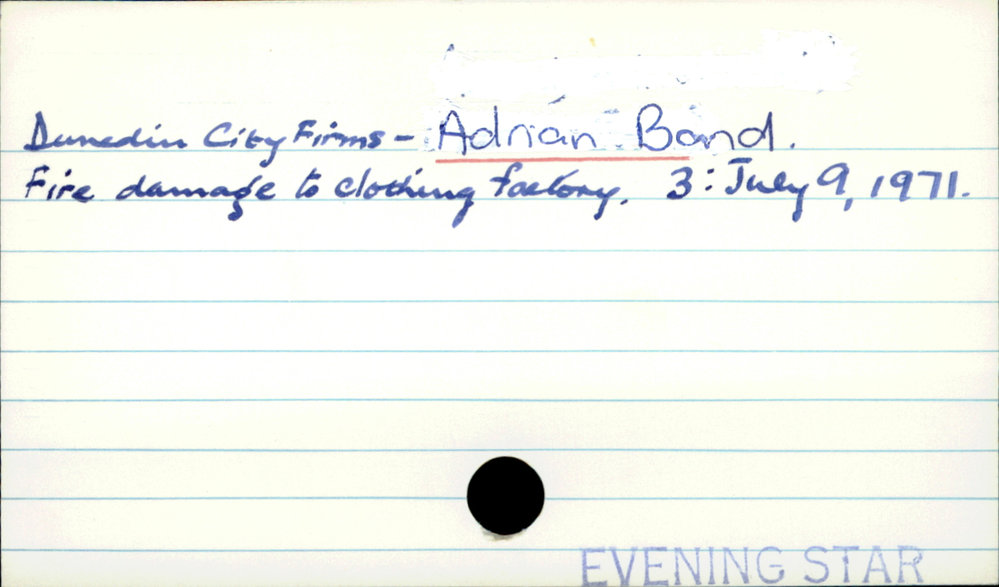 Dunedin City Firms - Adrian Band.
Fire damage to clothing factory. 3: July 9, 1971.
EVENING STAR